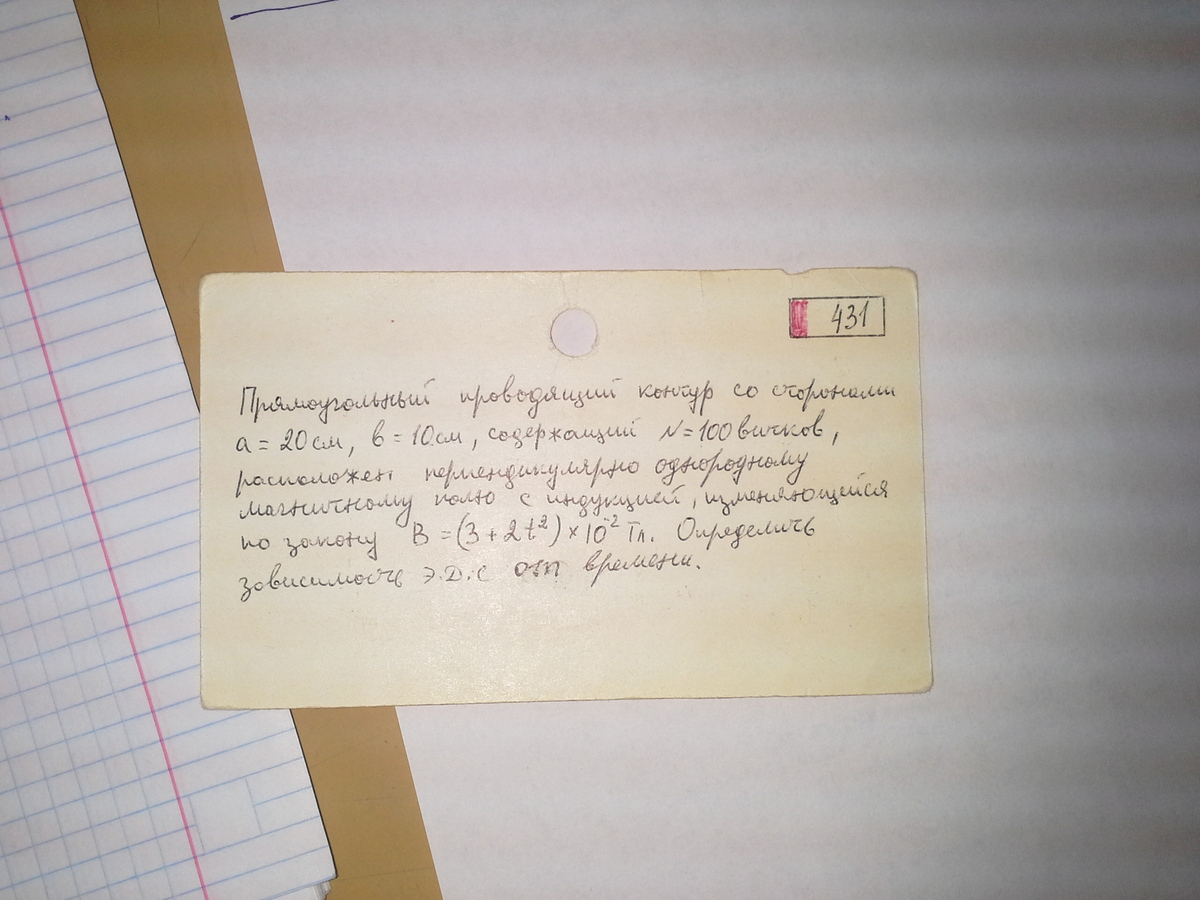 431
Прямоугольный проводящий контур со сторонами
a = 20 см, в = 10 см, содержащий N = 100 витков,
расположен перпендикулярно однородному
магнитному полю с индукцией, изменяющейся
по закону B = (3 + 2t²) × 10⁻² Тл. Определить
зависимость э.д.с от времени.